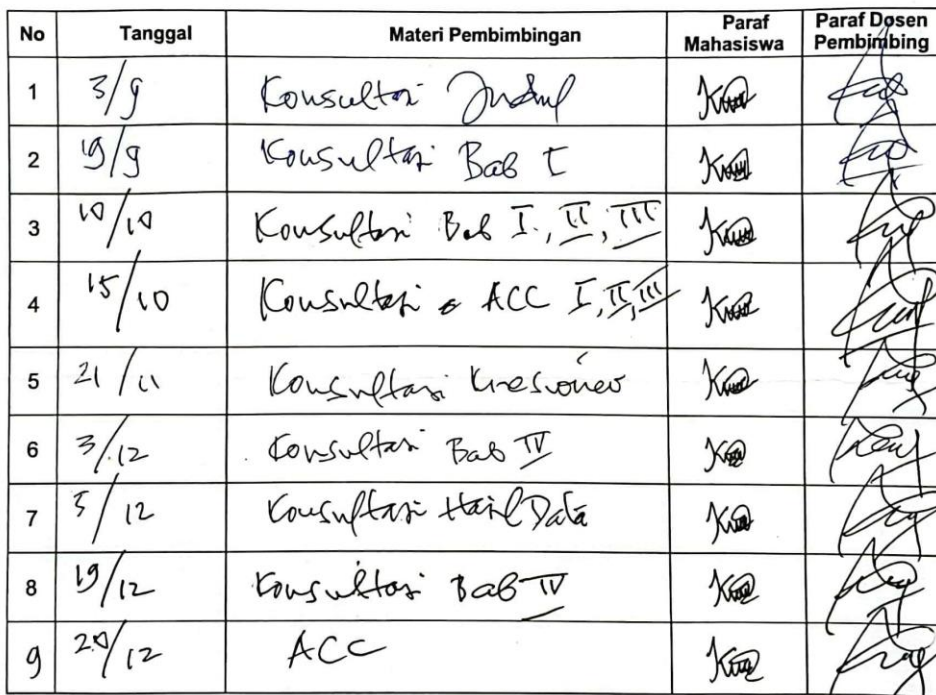 No Tanggal Materi Pembimbingan Paraf Mahasiswa Paraf Dosen Pembimbing
1 3/9 Konsultasi Judul
2 19/9 Konsultasi Bab I
3 10/10 Konsultasi Bab I, II, III
4 15/10 Konsultasi ACC I, II, III
5 21/11 Konsultasi Kuesioner
6 3/12 Konsultasi Bab IV
7 5/12 Konsultasi Hasil Data
8 19/12 Konsultasi Bab IV
9 20/12 ACC